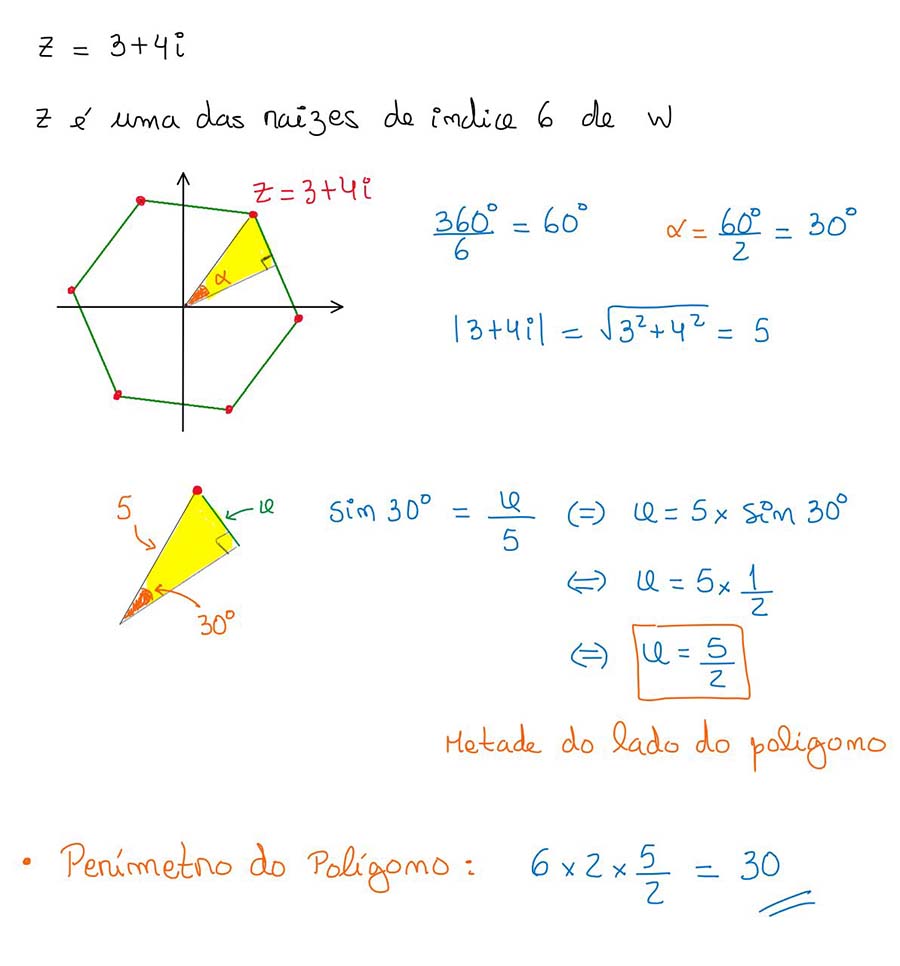 z = 3+4i
z é uma das raízes de índice 6 de w
z = 3+4i
α
360°/6 = 60°
α = 60°/2 = 30°
|3+4i| = √(3²+4²) = 5
5
30°
sin 30° = /5 (=) = 5 × sin 30°
(=) = 5 × 1/2
(=) = 5/2
Metade do lado do polígono
• Perímetro do Polígono: 6 × 2 × 5/2 = 30